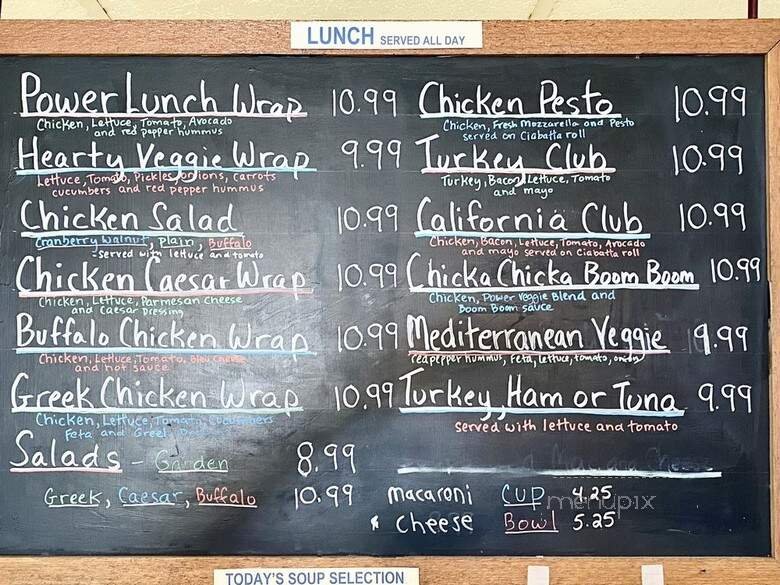 LUNCH SERVED ALL DAY
Power Lunch Wrap 10.99
Chicken, Lettuce, Tomato, Avocado
and red pepper hummus
Hearty Veggie Wrap 9.99
Lettuce, Tomato, Pickles, onions, carrots
cucumbers and red pepper hummus
Chicken Salad 10.99
Cranberry Walnut, Plain, Buffalo
-served with lettuce and tomato
Chicken Caesar Wrap 10.99
Chicken, Lettuce, Parmesan Cheese
and Caesar Dressing
Buffalo Chicken Wrap 10.99
Chicken, Lettuce, Tomato, Bleu Cheese
and hot sauce
Greek Chicken Wrap 10.99
Chicken, Lettuce, Tomato, Cucumbers
Feta and Greek
Salads - Garden 8.99
Greek, Caesar, Buffalo 10.99
Chicken Pesto 10.99
Chicken, Fresh Mozzarella and Pesto
served on Ciabatta roll
Turkey Club 10.99
Turkey, Bacon, Lettuce, Tomato
and mayo
California Club 10.99
Chicken, Bacon, Lettuce, Tomato, Avocado
and mayo served on Ciabatta roll
Chicka Chicka Boom Boom 10.99
Chicken, Power Veggie Blend and
Boom Boom sauce
Mediterranean Veggie 9.99
redpepper hummus, Feta, lettuce, tomato,
Turkey, Ham or Tuna 9.99
served with lettuce and tomato
macaroni Cup 4.25
& cheese Bowl 5.25
menupix
TODAY'S SOUP SELECTION